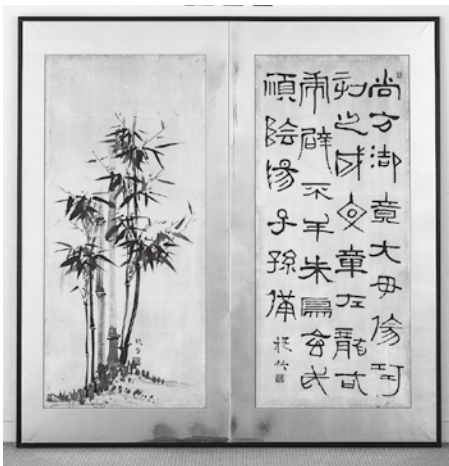 尚方御竟大毋傷巧
刻之成文章左龍右
虎辟不羊朱鳥玄武
順陰陽子孫備